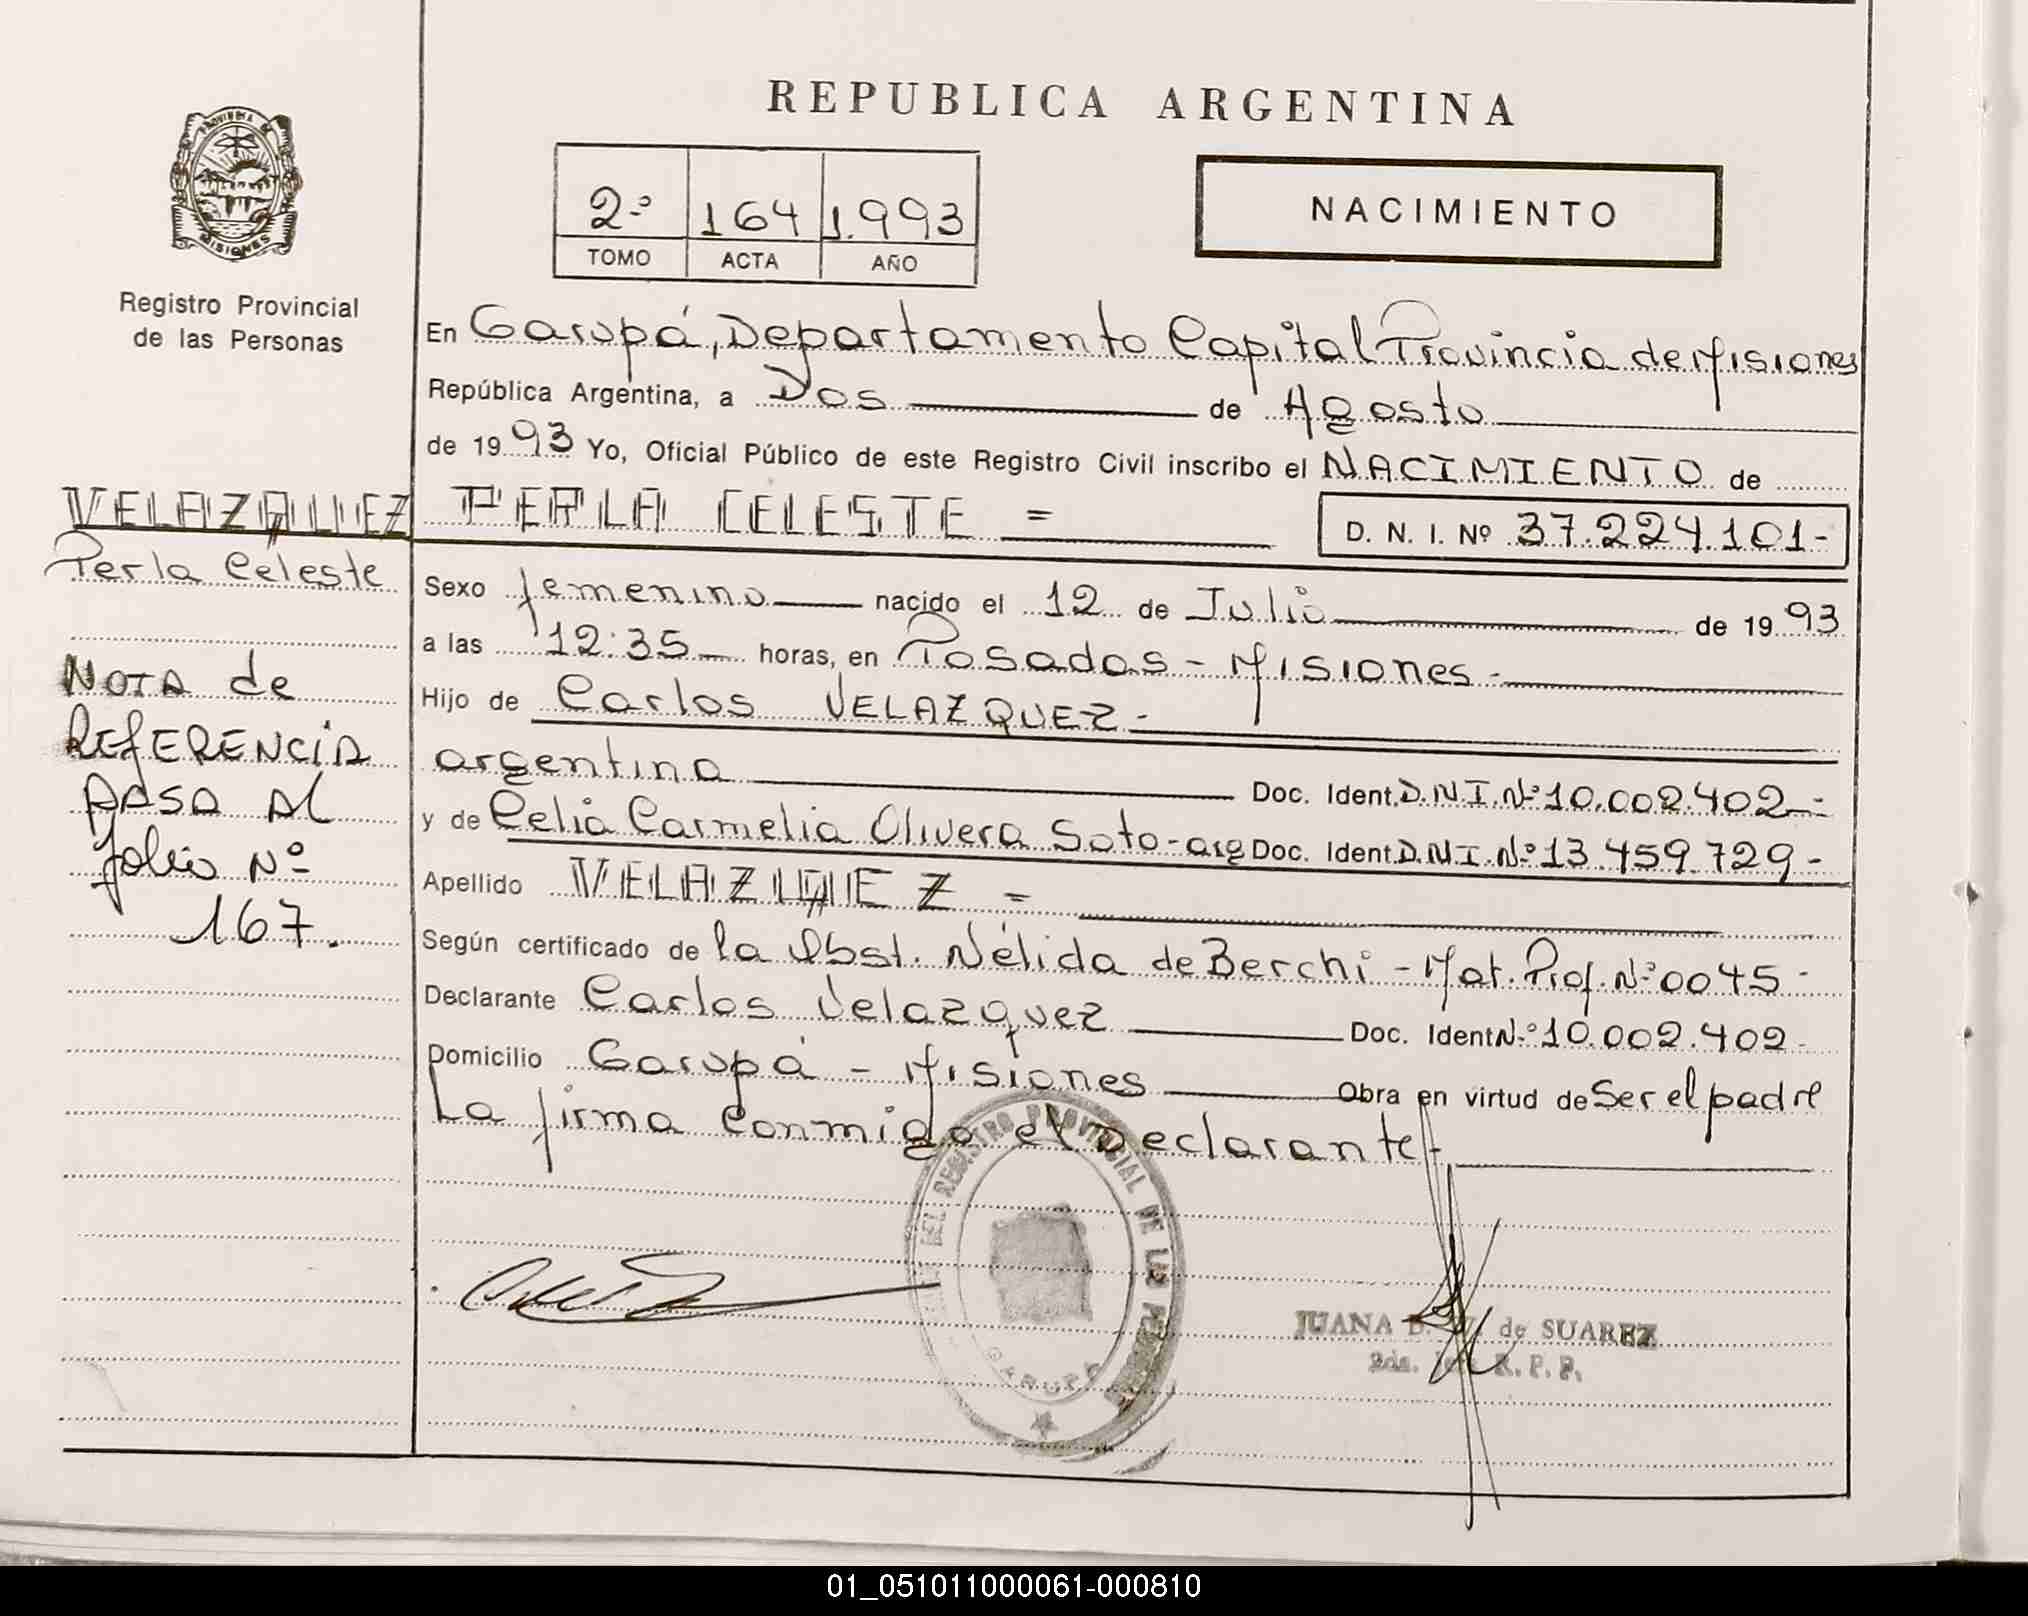 REPUBLICA ARGENTINA
PROVINCIA DE
MISIONES
Registro Provincial
de las Personas
2º 164 1.993
TOMO ACTA AÑO
NACIMIENTO
En Garupá, Departamento Capital Provincia de Misiones
República Argentina, a Dos de Agosto
de 1993 Yo, Oficial Público de este Registro Civil inscribo el NACIMIENTO de
VELAZQUEZ PERLA CELESTE =
D. N. I. Nº 37.224.101-
Perla Celeste
Sexo femenino nacido el 12 de Julio de 1993
a las 12:35 horas, en Posadas - Misiones -
Hijo de Carlos VELAZQUEZ -
argentina Doc. Ident. D.N.I. Nº 10.002.402-
y de Celia Carmelia Olivera Soto - arg Doc. Ident D.N.I. Nº 13.459.729-
Apellido VELAZQUEZ =
Según certificado de la Obst. Nélida de Berchi - Mat. Prof. Nº 0045-
Declarante Carlos Velazquez Doc. Ident Nº 10.002.402-
Domicilio Garupá - Misiones Obra en virtud de Ser el padre
La firma conmigo el Declarante -
NOTA de
REfERENCiA
PASA Al
folio Nº
167.
DEL REGISTRO PROVINCIAL DE LAS
GARUPA
JUANA de SUAREZ
R. P. P.
01_051011000061-000810